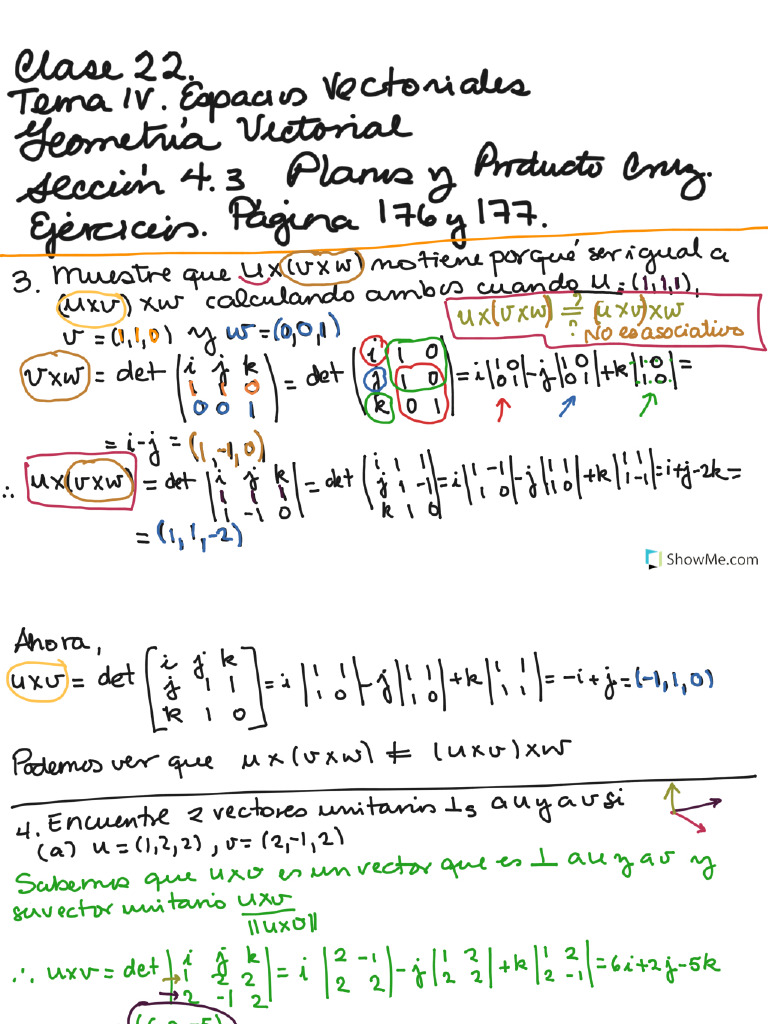 Clase 22.
Tema IV. Espacios Vectoriales
Geometría Vectorial
Sección 4.3 Planos y Producto Cruz.
Ejercicios. Página 176 y 177.
3. Muestre que u×(v×w) no tiene porqué ser igual a
(u×v)×w calculando ambos cuando u=(1,1,1),
v=(1,1,0) y w=(0,0,1)
u×(v×w) ?=? (u×v)×w
No es asociativo
v×w = det |i j k; 1 1 0; 0 0 1| = det |i 1 0; j 1 0; k 0 1| = i|1 0; 0 1| - j|1 0; 0 1| + k|1 0; 1 0| =
= i-j = (1,-1,0)
∴ u×(v×w) = det |i j k; 1 1 1; 1 -1 0| = det |i 1 1; j 1 -1; k 1 0| = i|1 -1; 1 0| - j|1 1; 1 0| + k|1 1; 1 -1| = i+j-2k =
= (1,1,-2)
ShowMe.com
Ahora,
u×v = det [i j k; j 1 1; k 1 0] = i|1 1; 1 0| - j|1 1; 1 0| + k|1 1; 1 1| = -i+j = (-1,1,0)
Podemos ver que u×(v×w) ≠ (u×v)×w
4. Encuentre 2 vectores unitarios ⊥s a u y a v si
(a) u=(1,2,2), v=(2,-1,2)
Sabemos que u×v es un vector que es ⊥ a u y a v y
su vector unitario u×v
||u×v||
∴ u×v = det |i j k; 1 2 2; 2 -1 2| = i|2 -1; 2 2| - j|1 2; 2 2| + k|1 2; 2 -1| = 6i+2j-5k